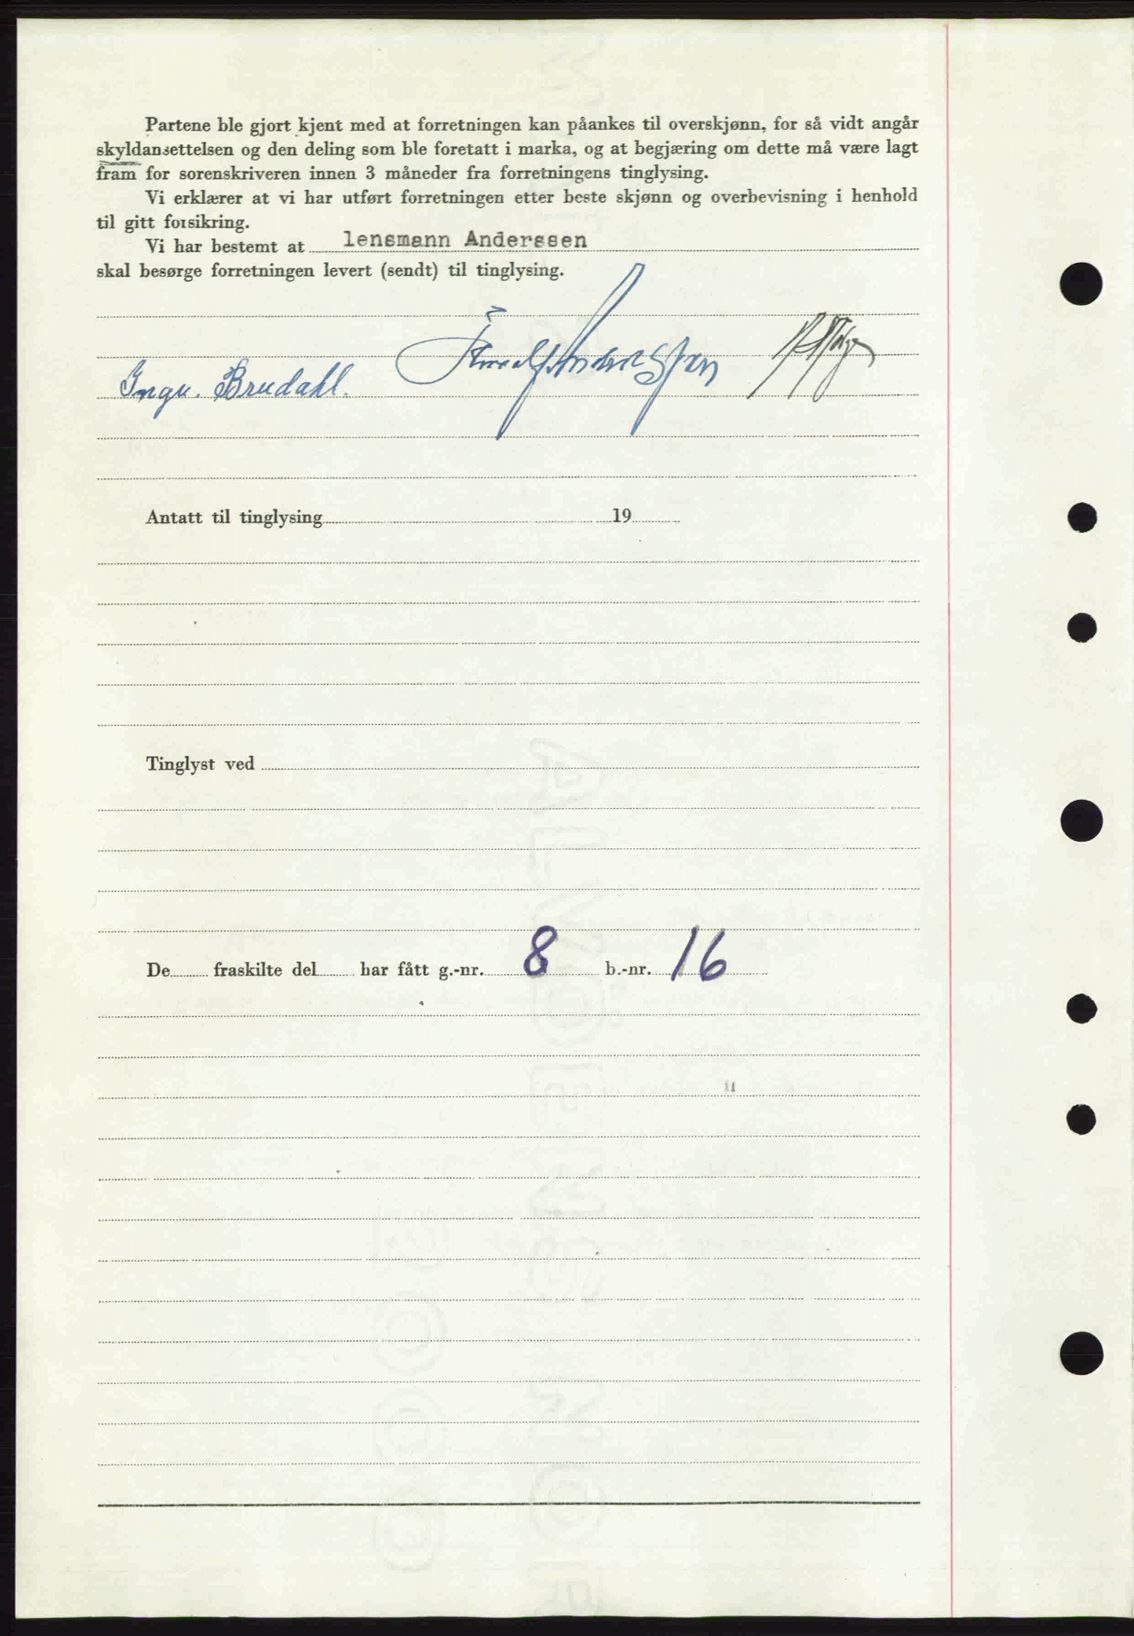 Partene ble gjort kjent med at forretningen kan påankes til overskjønn, for så vidt angår
skyldansettelsen og den deling som ble foretatt i marka, og at begjæring om dette må være lagt
fram for sorenskriveren innen 3 måneder fra forretningens tinglysing.
Vi erklærer at vi har utført forretningen etter beste skjønn og overbevisning i henhold
til gitt forsikring.
Vi har bestemt at lensmann Anderssen
skal besørge forretningen levert (sendt) til tinglysing.
Ingv. Brudahl.
Antatt til tinglysing 19
Tinglyst ved
De fraskilte del har fått g.-nr. 8 b.-nr. 16